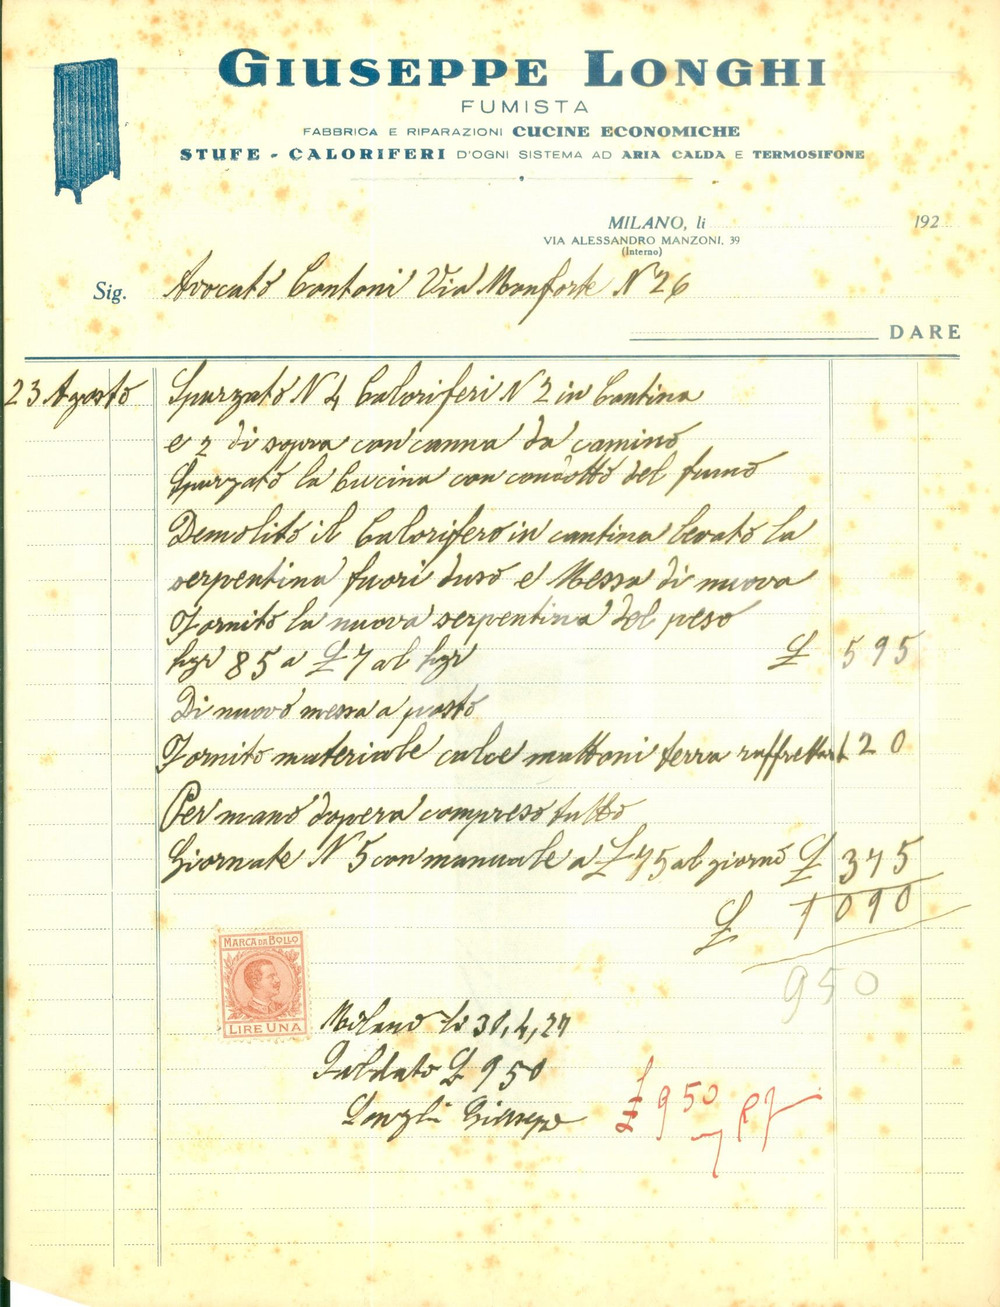 GIUSEPPE LONGHI
FUMISTA
FABBRICA E RIPARAZIONI CUCINE ECONOMICHE
STUFE - CALORIFERI D'OGNI SISTEMA AD ARIA CALDA E TERMOSIFONE
MILANO, li 192
VIA ALESSANDRO MANZONI, 39
(Interno)
Sig. Avocato Cantoni Via Monforte N 26
DARE
23 Agosto Spurzato N 4 Caloriferi N 2 in Cantina
e 2 di sopra con canna da camino
Spurzato la Cucina con condotto del fumo
Demolito il Calorifero in cantina levato la
serpentina fuori duso e Messa di nuova
Fornito la nuova serpentina del peso
kgr 85 a £ 7 al kgr £ 595
Di nuovo messa a posto
Fornito materiale calce mattoni terra 120
Per mano dopera compreso tutto
Giornate N 5 con manuale a £ 75 al giorno £ 375
£ 1090
950
MARCA DA BOLLO
LIRE UNA
Milano li 30,4,27
Saldato £ 950
Longhi Giuseppe
£ 950